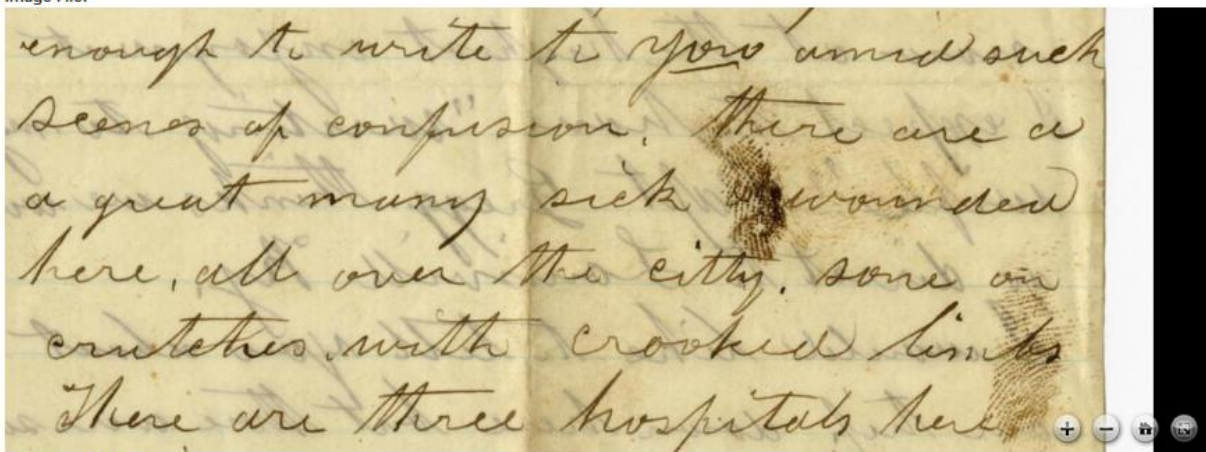 enough to write to you amid such
scenes of confusion. there are a
a great many sick & wounded
here, all over the citty. some on
crutches with crooked limbs
There are three hospitals here